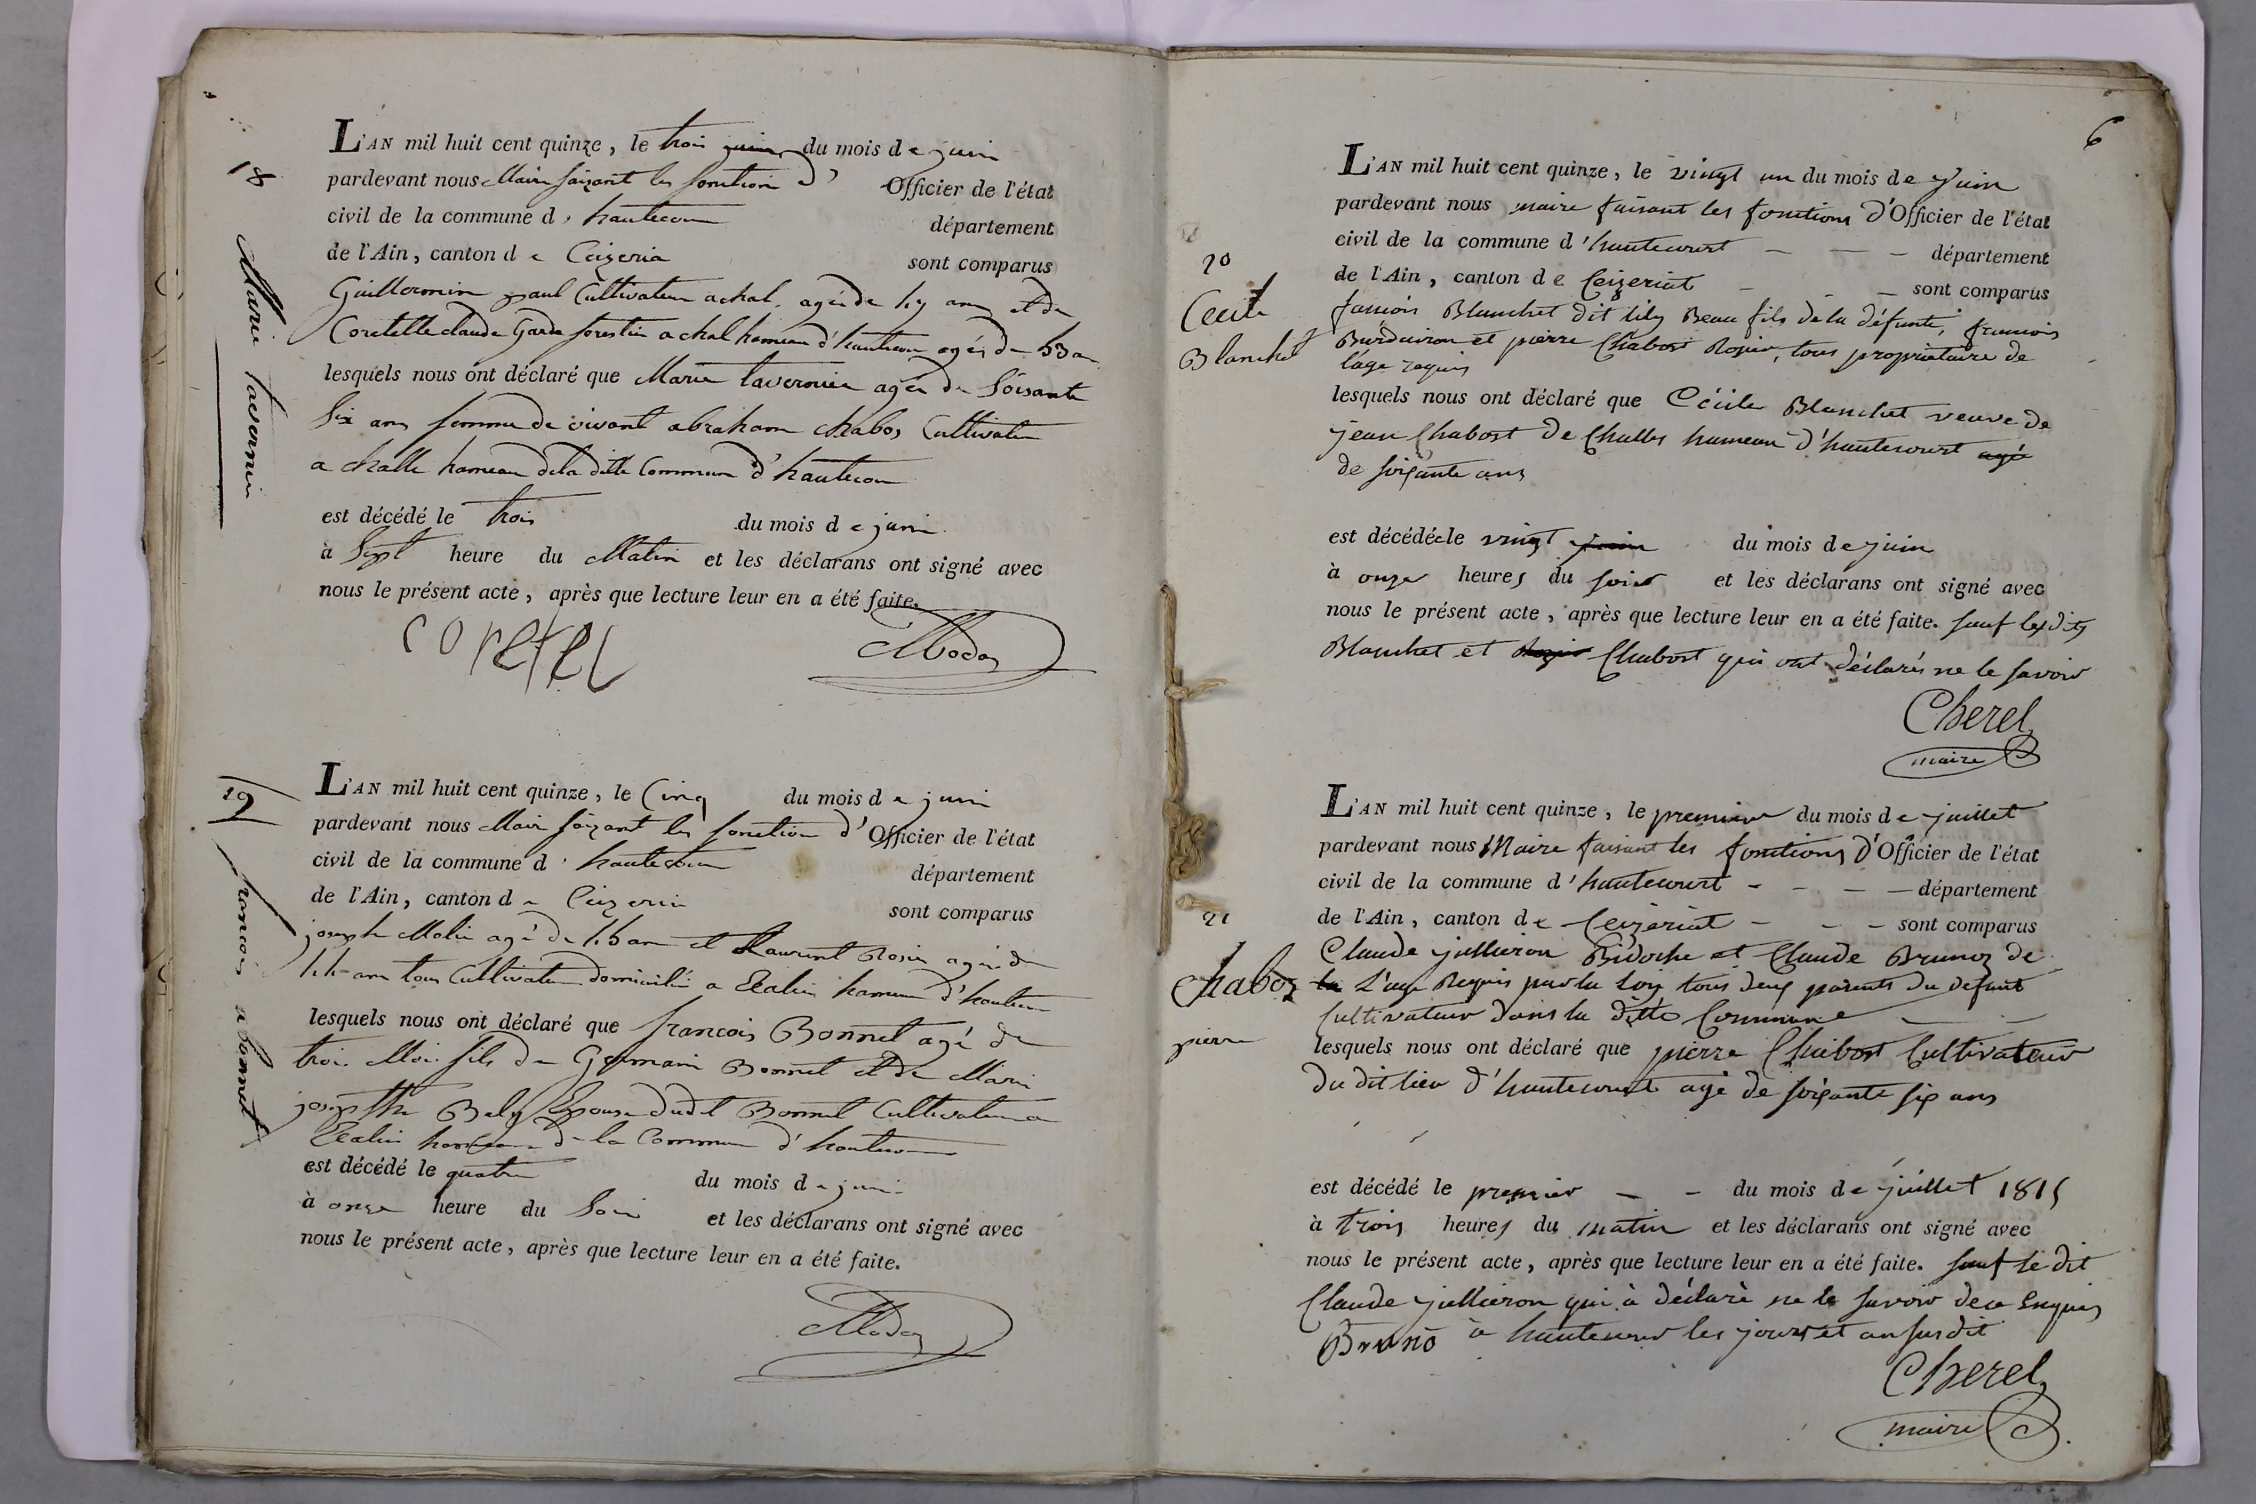 18
Marie tavernier
L'AN mil huit cent quinze, le trois juin du mois de juin
pardevant nous Maire faizant les fonction d' Officier de l'état
civil de la commune d' hautecour département
de l'Ain, canton de Ceizeria sont comparus
Guillermin paul Cultivateur a chal. agé de ans et de
Coretelle claude Garde forestier a chal hameau d'hautecour agés de 53 an
lesquels nous ont déclaré que Marie tavernier agée de Soisante
Six ans femme de vivant abraham chabos Cultivateur
a challe hameau de la ditte Commune d'hautecour
est décédé le trois du mois de juin
à Sept heure du Matin et les déclarans ont signé avec
nous le présent acte, après que lecture leur en a été faite.
coretel
19
francois a bonnet
L'AN mil huit cent quinze, le Cinq du mois de juin
pardevant nous Maire faizant les fonction d' Officier de l'état
civil de la commune d' hautecour département
de l'Ain, canton de Ceizeria sont comparus
joseph agé de ans et Laurent Rosier agé de
ans tous Cultivateur domicilié a hameau d'hautecour
lesquels nous ont déclaré que francois Bonnet agé de
trois Mois fils de Germain Bonnet et de Marie
josepthe Bely Epouse dudit Bonnet Cultivateur a
hameau de la Commune d'hautecour
est décédé le quatre du mois de juin
à onze heure du Soir et les déclarans ont signé avec
nous le présent acte, après que lecture leur en a été faite.
6
20
Cecile
Blanchet
L'AN mil huit cent quinze, le vingt un du mois de Juin
pardevant nous maire faisant les fonctions d'Officier de l'état
civil de la commune d'hautecourt département
de l'Ain, canton de Ceizeriat sont comparus
francois Blanchet dit lily Beau fils de la défunte, francois
Burdairon et pierre Chabost Rosier, tous propriétaire de
l'age requis
lesquels nous ont déclaré que Cécile Blanchet veuve de
jean Chabost de Challes hameau d'hautecourt agé
de soixante ans
est décédée le vingt juin du mois de juin
à onze heures du soir et les déclarans ont signé avec
nous le présent acte, après que lecture leur en a été faite. sauf lesdits
Blanchet et Chabost qui ont déclarés ne le savoir
Cherel
maire
21
Chaboz
pierre
L'AN mil huit cent quinze, le premier du mois de juillet
pardevant nous Maire faisant les fonctions d'Officier de l'état
civil de la commune d'hautecourt département
de l'Ain, canton de Ceizériat sont comparus
Claude jullieron Bidoche et Claude Brunoz de
la L'age Requis par la Loy tous deux parents du défunt
Cultivateur dans la ditte Commune
lesquels nous ont déclaré que pierre Chabost Cultivateur
du dit lieu d'hautecourt agé de soixante six ans
est décédé le premier du mois de juillet 1815
à trois heures du matin et les déclarans ont signé avec
nous le présent acte, après que lecture leur en a été faite. sauf le dit
Claude jullieron qui à déclaré ne le savoir de ce Enquis
Bruno à hautecour les jours et an susdit
Cherel
maire